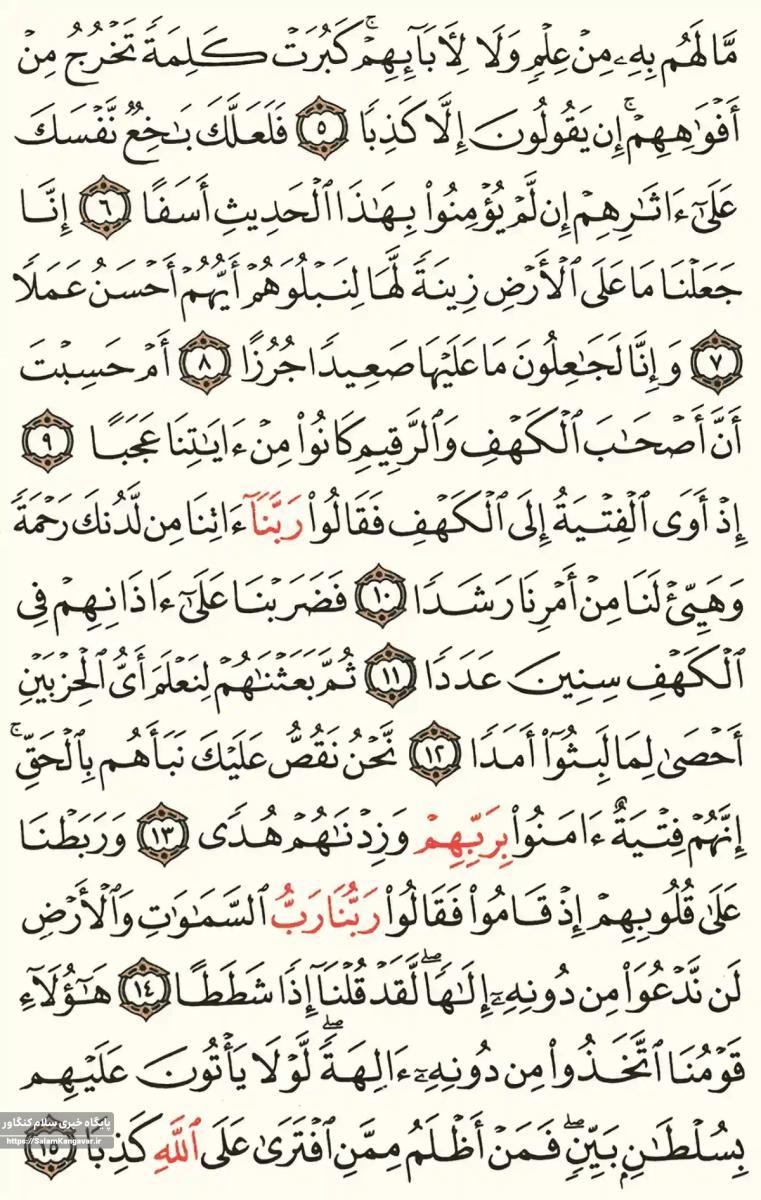 مَّا لَهُم بِهِۦ مِنۡ عِلۡمٖ وَلَا لِأٓبَآئِهِمۡۚ كَبُرَتۡ كَلِمَةٗ تَخۡرُجُ مِنۡ
أَفۡوَٰهِهِمۡۚ إِن يَقُولُونَ إِلَّا كَذِبٗا ٥ فَلَعَلَّكَ بَٰخِعٞ نَّفۡسَكَ
عَلَىٰٓ ءَاثَٰرِهِمۡ إِن لَّمۡ يُؤۡمِنُواْ بِهَٰذَا ٱلۡحَدِيثِ أَسَفًا ٦ إِنَّا
جَعَلۡنَا مَا عَلَى ٱلۡأَرۡضِ زِينَةٗ لَّهَا لِنَبۡلُوَهُمۡ أَيُّهُمۡ أَحۡسَنُ عَمَلٗا
٧ وَإِنَّا لَجَٰعِلُونَ مَا عَلَيۡهَا صَعِيدٗا جُرُزًا ٨ أَمۡ حَسِبۡتَ
أَنَّ أَصۡحَٰبَ ٱلۡكَهۡفِ وَٱلرَّقِيمِ كَانُواْ مِنۡ ءَايَٰتِنَا عَجَبًا ٩
إِذۡ أَوَى ٱلۡفِتۡيَةُ إِلَى ٱلۡكَهۡفِ فَقَالُواْ رَبَّنَآ ءَاتِنَا مِن لَّدُنكَ رَحۡمَةٗ
وَهَيِّئۡ لَنَا مِنۡ أَمۡرِنَا رَشَدٗا ١٠ فَضَرَبۡنَا عَلَىٰٓ ءَاذَانِهِمۡ فِي
ٱلۡكَهۡفِ سِنِينَ عَدَدٗا ١١ ثُمَّ بَعَثۡنَٰهُمۡ لِنَعۡلَمَ أَيُّ ٱلۡحِزۡبَيۡنِ
أَحۡصَىٰ لِمَا لَبِثُوٓاْ أَمَدٗا ١٢ نَّحۡنُ نَقُصُّ عَلَيۡكَ نَبَأَهُم بِٱلۡحَقِّۚ
إِنَّهُمۡ فِتۡيَةٌ ءَامَنُواْ بِرَبِّهِمۡ وَزِدۡنَٰهُمۡ هُدٗى ١٣ وَرَبَطۡنَا
عَلَىٰ قُلُوبِهِمۡ إِذۡ قَامُواْ فَقَالُواْ رَبُّنَا رَبُّ ٱلسَّمَٰوَٰتِ وَٱلۡأَرۡضِ
لَن نَّدۡعُوَاْ مِن دُونِهِۦٓ إِلَٰهٗاۖ لَّقَدۡ قُلۡنَآ إِذٗا شَطَطًا ١٤ هَٰٓؤُلَآءِ
قَوۡمُنَا ٱتَّخَذُواْ مِن دُونِهِۦٓ ءَالِهَةٗۖ لَّوۡلَا يَأۡتُونَ عَلَيۡهِم
بِسُلۡطَٰنِۭ بَيِّنٖۖ فَمَنۡ أَظۡلَمُ مِمَّنِ ٱفۡتَرَىٰ عَلَى ٱللَّهِ كَذِبٗا ١٥
پایگاه خبری سلام کنگاور
https://SalamKangavar.ir